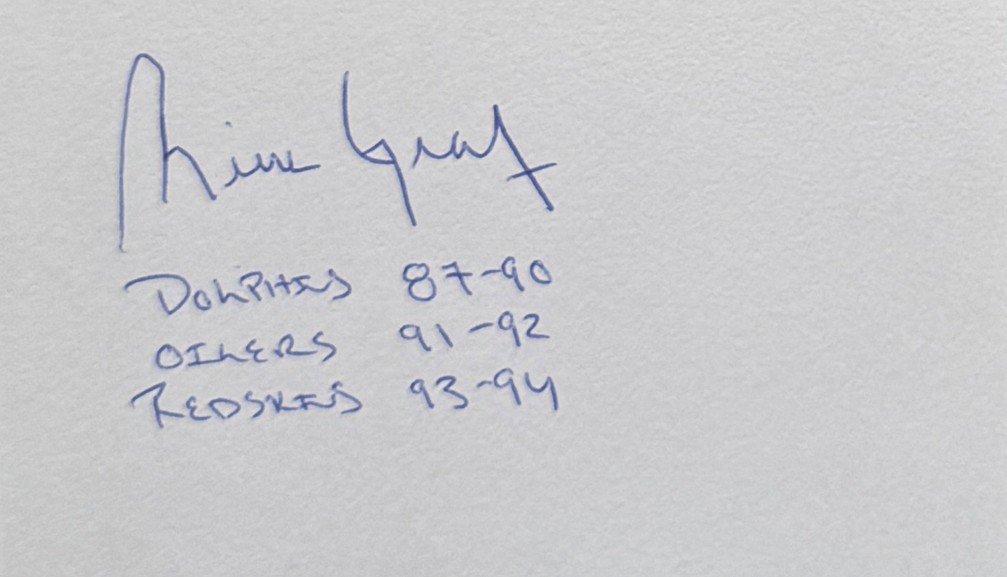 Rick Graf
Dolphins 87-90
OILERS 91-92
REDSKINS 93-94